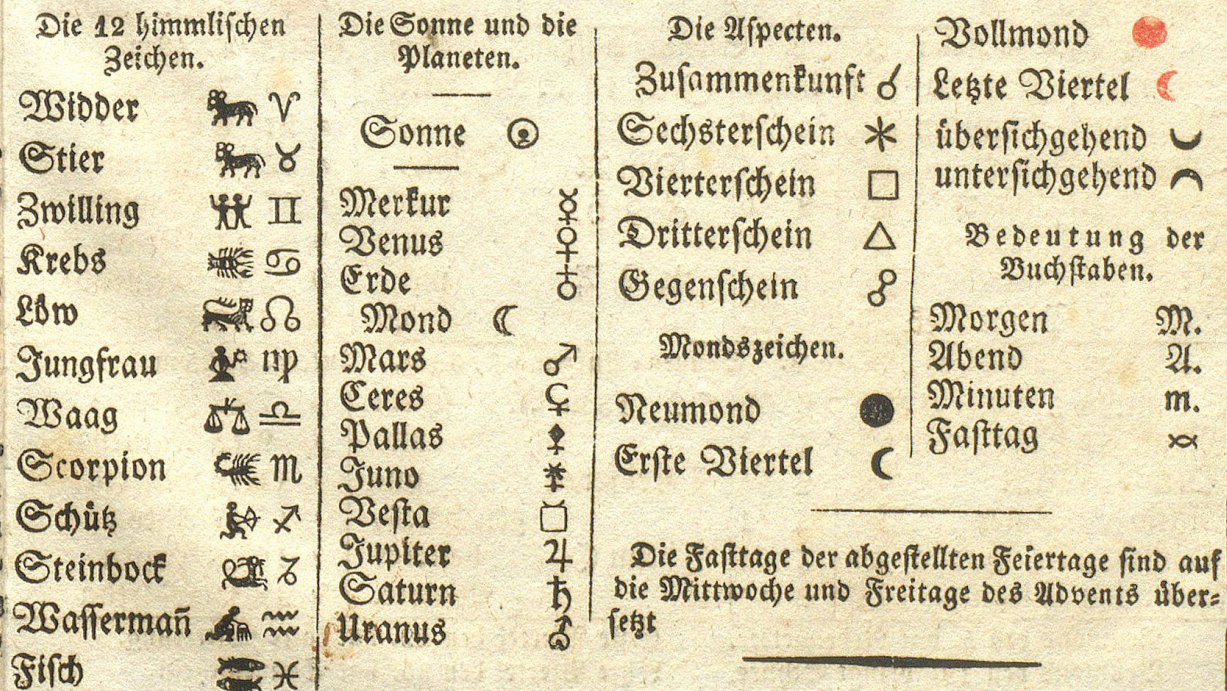 Die 12 himmlischen
Zeichen.
Widder ♈
Stier ♉
Zwilling ♊
Krebs ♋
Löw ♌
Jungfrau ♍
Waag ♎
Scorpion ♏
Schütz ♐
Steinbock ♑
Wassermañ ♒
Fisch ♓
Die Sonne und die
Planeten.
Sonne ☉
Merkur ☿
Venus ♀
Erde ♁
Mond ☾
Mars ♂
Ceres ⚳
Pallas ⚴
Juno ⚵
Vesta ⚶
Jupiter ♃
Saturn ♄
Uranus ⛢
Die Aspecten.
Zusammenkunft ☌
Sechsterschein ⚹
Vierterschein □
Dritterschein △
Gegenschein ☍
Mondszeichen.
Neumond ●
Erste Viertel ☾
Vollmond ●
Letzte Viertel ☾
übersichgehend
untersichgehend
Bedeutung der
Buchstaben.
Morgen M.
Abend A.
Minuten m.
Fasttag
Die Fasttage der abgestellten Feiertage sind auf
die Mittwoche und Freitage des Advents über-
setzt